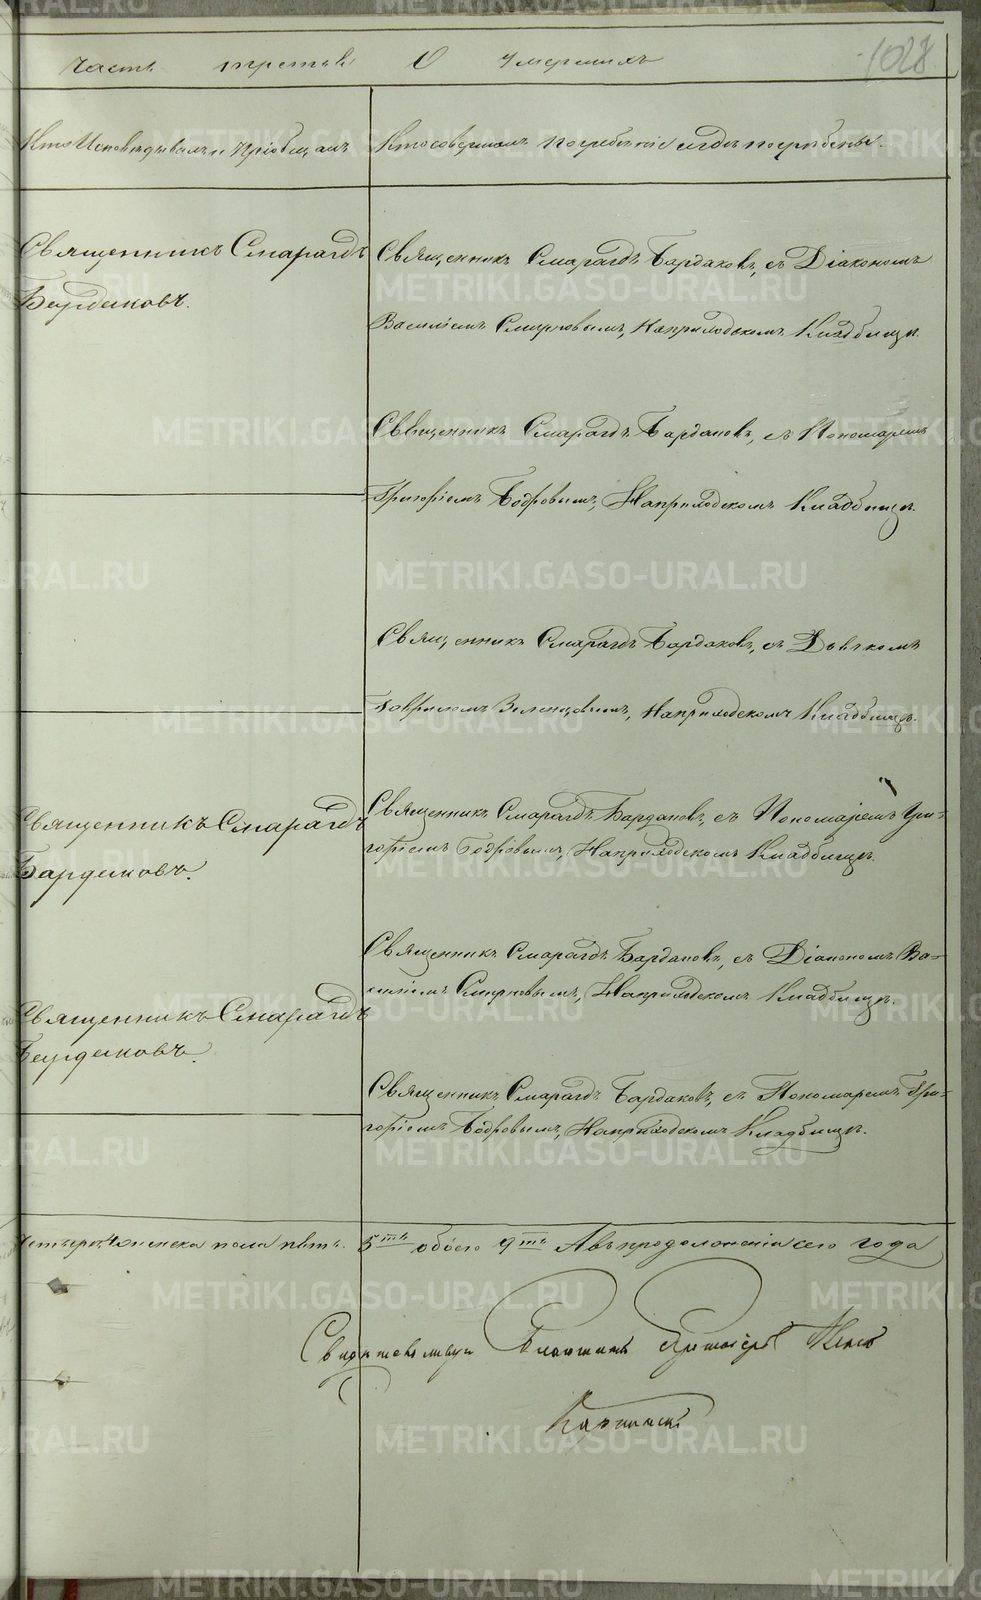 Часть третья О умершихъ
1028
Кто Исповѣдывалъ и Пріобщалъ
Кто совершалъ погребеніе и гдѣ погребены.
Священникъ Смарагдъ
Бардаковъ.
Священникъ Смарагдъ Бардаковъ, съ Діакономъ
Василіемъ Смирновымъ, На приходскомъ Кладбищѣ.
Священникъ Смарагдъ Бардаковъ, съ Пономаремъ
Григоріемъ Бодровымъ, На приходскомъ Кладбищѣ.
Священникъ Смарагдъ Бардаковъ, съ Дьячкомъ
Гавриломъ Зеленцовымъ, На приходскомъ Кладбищѣ.
Священникъ Смарагдъ
Бардаковъ.
Священникъ Смарагдъ Бардаковъ, съ Пономаремъ Гри-
горіемъ Бодровымъ, На приходскомъ Кладбищѣ.
Священникъ Смарагдъ Бардаковъ, съ Діакономъ Ва-
силіемъ Смирновымъ, На приходскомъ Кладбищѣ.
Священникъ Смарагдъ
Бардаковъ.
Священникъ Смарагдъ Бардаковъ, съ Пономаремъ Гри-
горіемъ Бодровымъ, На приходскомъ Кладбищѣ.
Четыре, Женска пола пять. 5ть обоего 9ть А въ продолженіи сего года
Свидѣтельствую Благочинный
METRIKI.GASO-URAL.RU